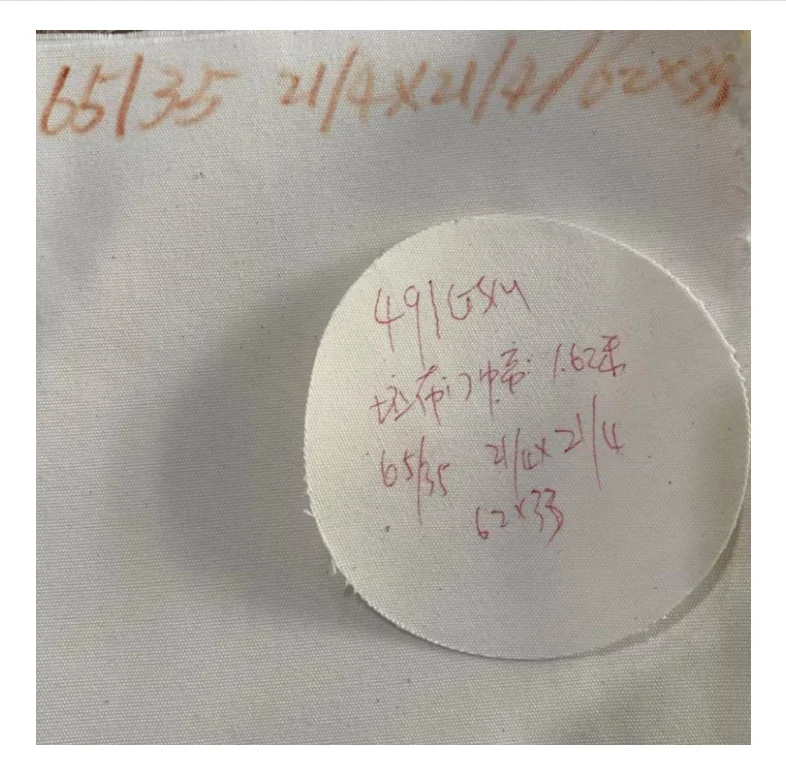 65/35 21/4×21/4/62×33
491GSM
坯布门巾帚 1.62米
65/35 21/4×21/4
62×33